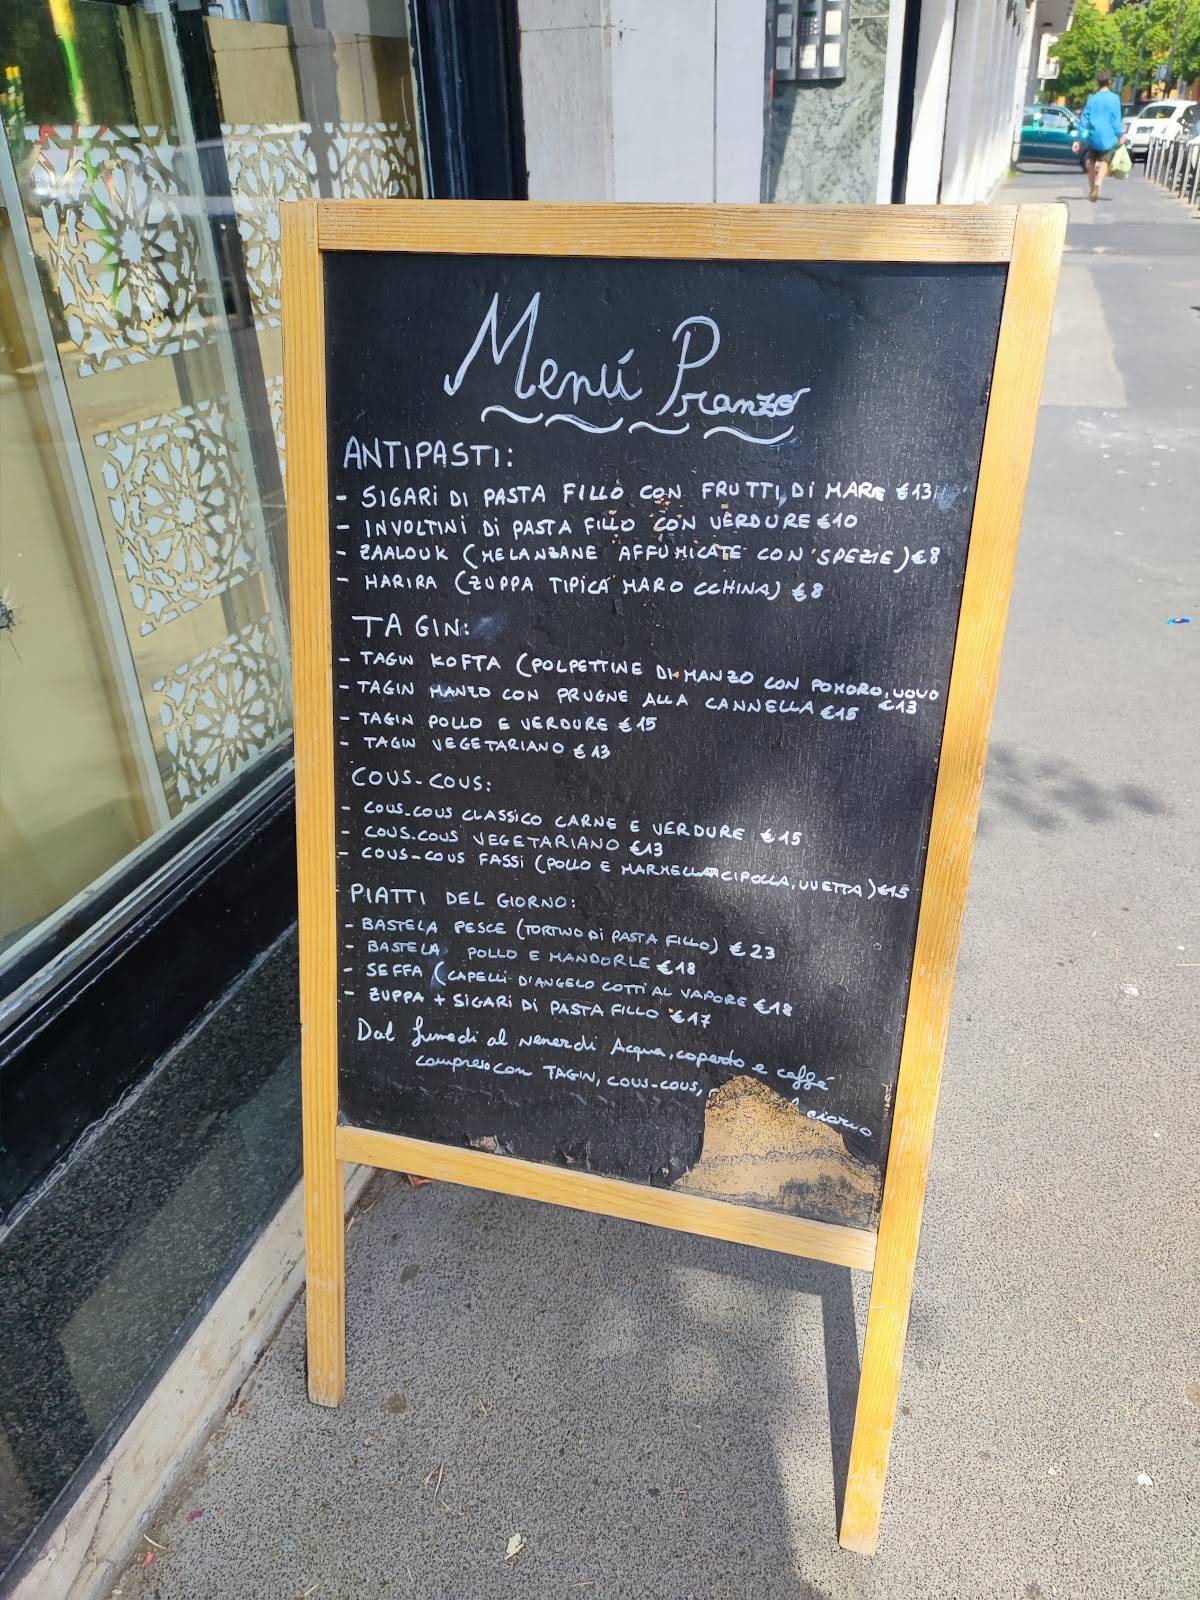 Menú Pranzo
ANTIPASTI:
- SIGARI DI PASTA FILLO CON FRUTTI DI MARE €13
- INVOLTINI DI PASTA FILLO CON VERDURE €10
- ZAALOUK (MELANZANE AFFUMICATE CON SPEZIE) €8
- HARIRA (ZUPPA TIPICA MAROCCHINA) €8
TAGIN:
- TAGIN KOFTA (POLPETTINE DI MANZO CON POMORO, UOVO
€13
- TAGIN MANZO CON PRUGNE ALLA CANNELLA €15
- TAGIN POLLO E VERDURE €15
- TAGIN VEGETARIANO €13
COUS-COUS:
- COUS-COUS CLASSICO CARNE E VERDURE €15
- COUS-COUS VEGETARIANO €13
- COUS-COUS FASSI (POLLO E CIPOLLA, UVETTA) €15
PIATTI DEL GIORNO:
- BASTELA PESCE (TORTINO DI PASTA FILLO) €23
- BASTELA POLLO E MANDORLE €18
- SEFFA (CAPELLI D'ANGELO COTTI AL VAPORE €18
- ZUPPA + SIGARI DI PASTA FILLO €17
Dal lunedi al venerdi Acqua, coperto e caffé
compreso con TAGIN, COUS-COUS,